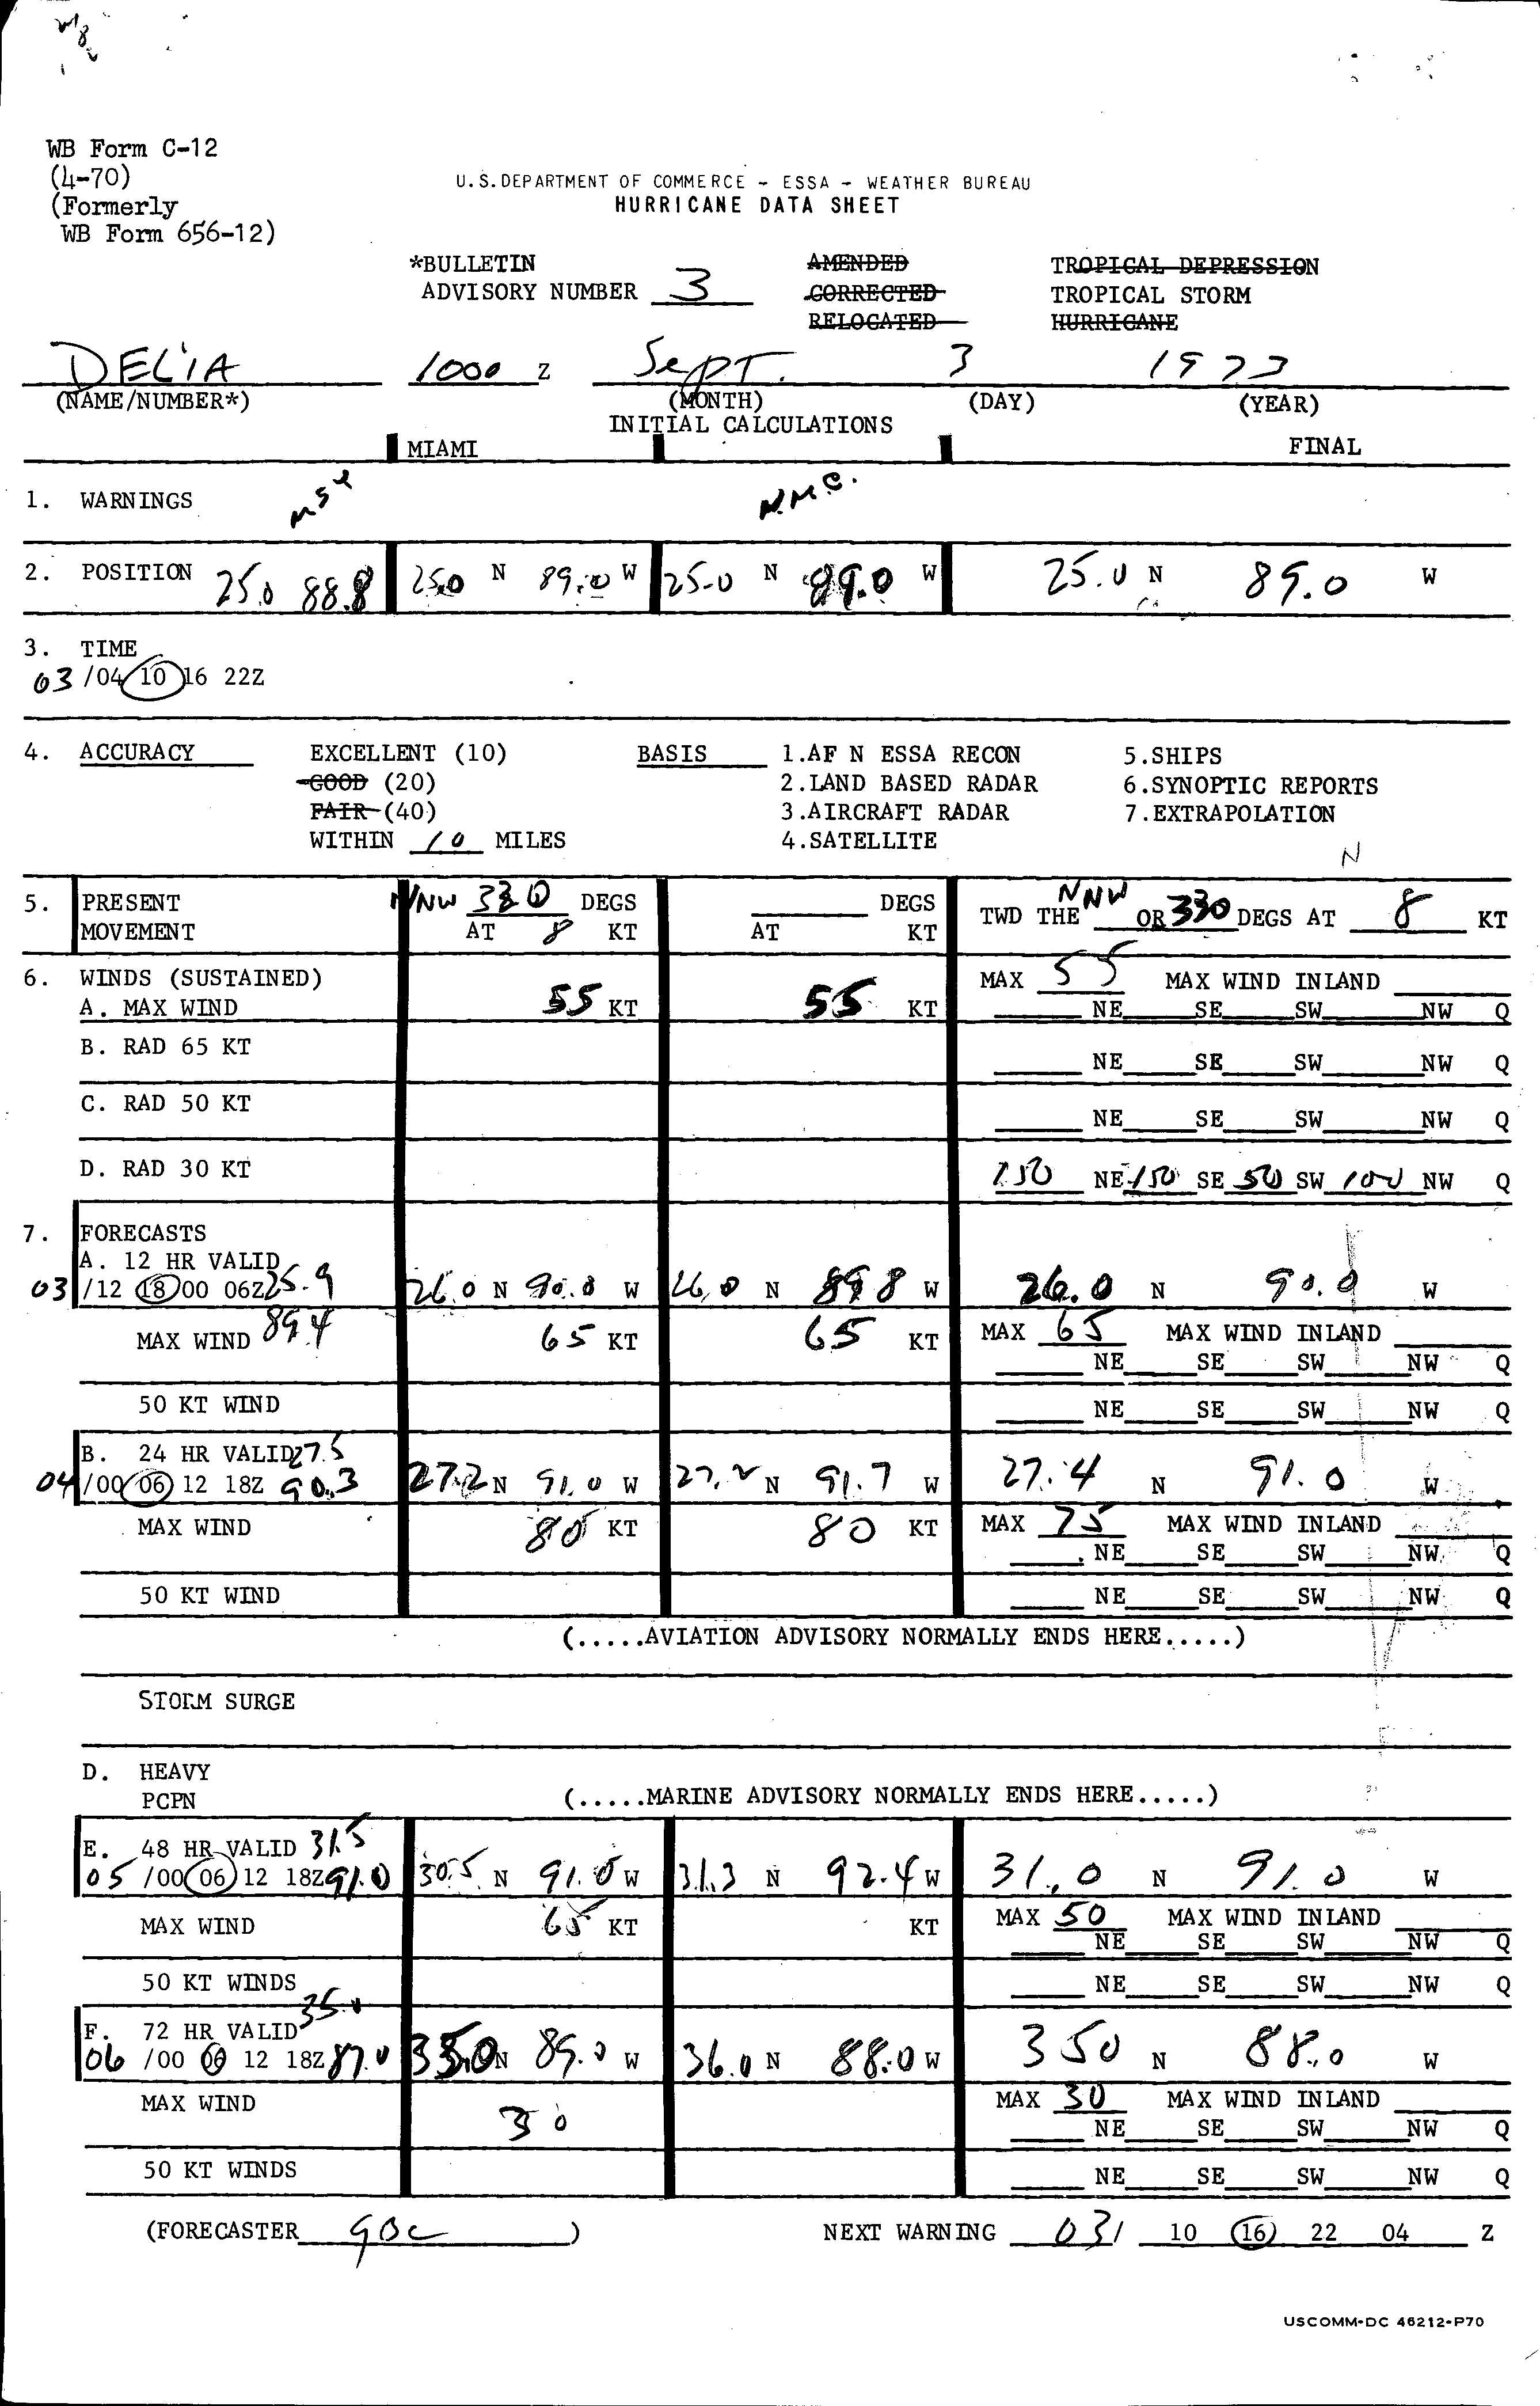 WB Form C-12
(4-70)
(Formerly
WB Form 656-12)
U.S. DEPARTMENT OF COMMERCE - ESSA - WEATHER BUREAU
HURRICANE DATA SHEET
*BULLETIN AMENDED TROPICAL DEPRESSION
ADVISORY NUMBER 3 CORRECTED TROPICAL STORM
RELOCATED HURRICANE
DELIA 1000 Z Sept. 3 1973
(NAME/NUMBER*) (MONTH) (DAY) (YEAR)
INITIAL CALCULATIONS
MIAMI FINAL
1. WARNINGS MSY N.M.C.
2. POSITION 25.0 88.8 25.0 N 89.0 W 25.0 N 89.0 W 25.0 N 89.0 W
3. TIME
03 /04 10 16 22Z
4. ACCURACY EXCELLENT (10) BASIS 1.AF N ESSA RECON 5.SHIPS
GOOD (20) 2.LAND BASED RADAR 6.SYNOPTIC REPORTS
FAIR (40) 3.AIRCRAFT RADAR 7.EXTRAPOLATION
WITHIN 10 MILES 4.SATELLITE
N
5. PRESENT NNW 330 DEGS DEGS TWD THE NNW OR 330 DEGS AT 8 KT
MOVEMENT AT 8 KT AT KT
6. WINDS (SUSTAINED) MAX 55 MAX WIND INLAND
A. MAX WIND 55 KT 55 KT NE SE SW NW Q
B. RAD 65 KT NE SE SW NW Q
C. RAD 50 KT NE SE SW NW Q
D. RAD 30 KT 150 NE 150 SE 50 SW 100 NW Q
7. FORECASTS
A. 12 HR VALID
03 /12 18 00 06Z 25.9 26.0 N 90.0 W 26.0 N 89.8 W 26.0 N 90.0 W
MAX WIND 89.4 65 KT 65 KT MAX 65 MAX WIND INLAND
NE SE SW NW Q
50 KT WIND NE SE SW NW Q
B. 24 HR VALID 27.5
04 /00 06 12 18Z 90.3 27.2 N 91.0 W 27.2 N 91.7 W 27.4 N 91.0 W
MAX WIND 80 KT 80 KT MAX 75 MAX WIND INLAND
NE SE SW NW Q
50 KT WIND NE SE SW NW Q
(.....AVIATION ADVISORY NORMALLY ENDS HERE.....)
STORM SURGE
D. HEAVY
PCPN (.....MARINE ADVISORY NORMALLY ENDS HERE.....)
E. 48 HR VALID 31.5
05 /00 06 12 18Z 91.0 30.5 N 91.0 W 31.3 N 92.4 W 31.0 N 91.0 W
MAX WIND 65 KT KT MAX 50 MAX WIND INLAND
NE SE SW NW Q
50 KT WINDS NE SE SW NW Q
F. 72 HR VALID 35.0
06 /00 06 12 18Z 87.0 35.0 N 89.0 W 36.0 N 88.0 W 350 N 88.0 W
MAX WIND 30 MAX 30 MAX WIND INLAND
NE SE SW NW Q
50 KT WINDS NE SE SW NW Q
(FORECASTER ) NEXT WARNING 03/ 10 16 22 04 Z
USCOMM-DC 46212-P70